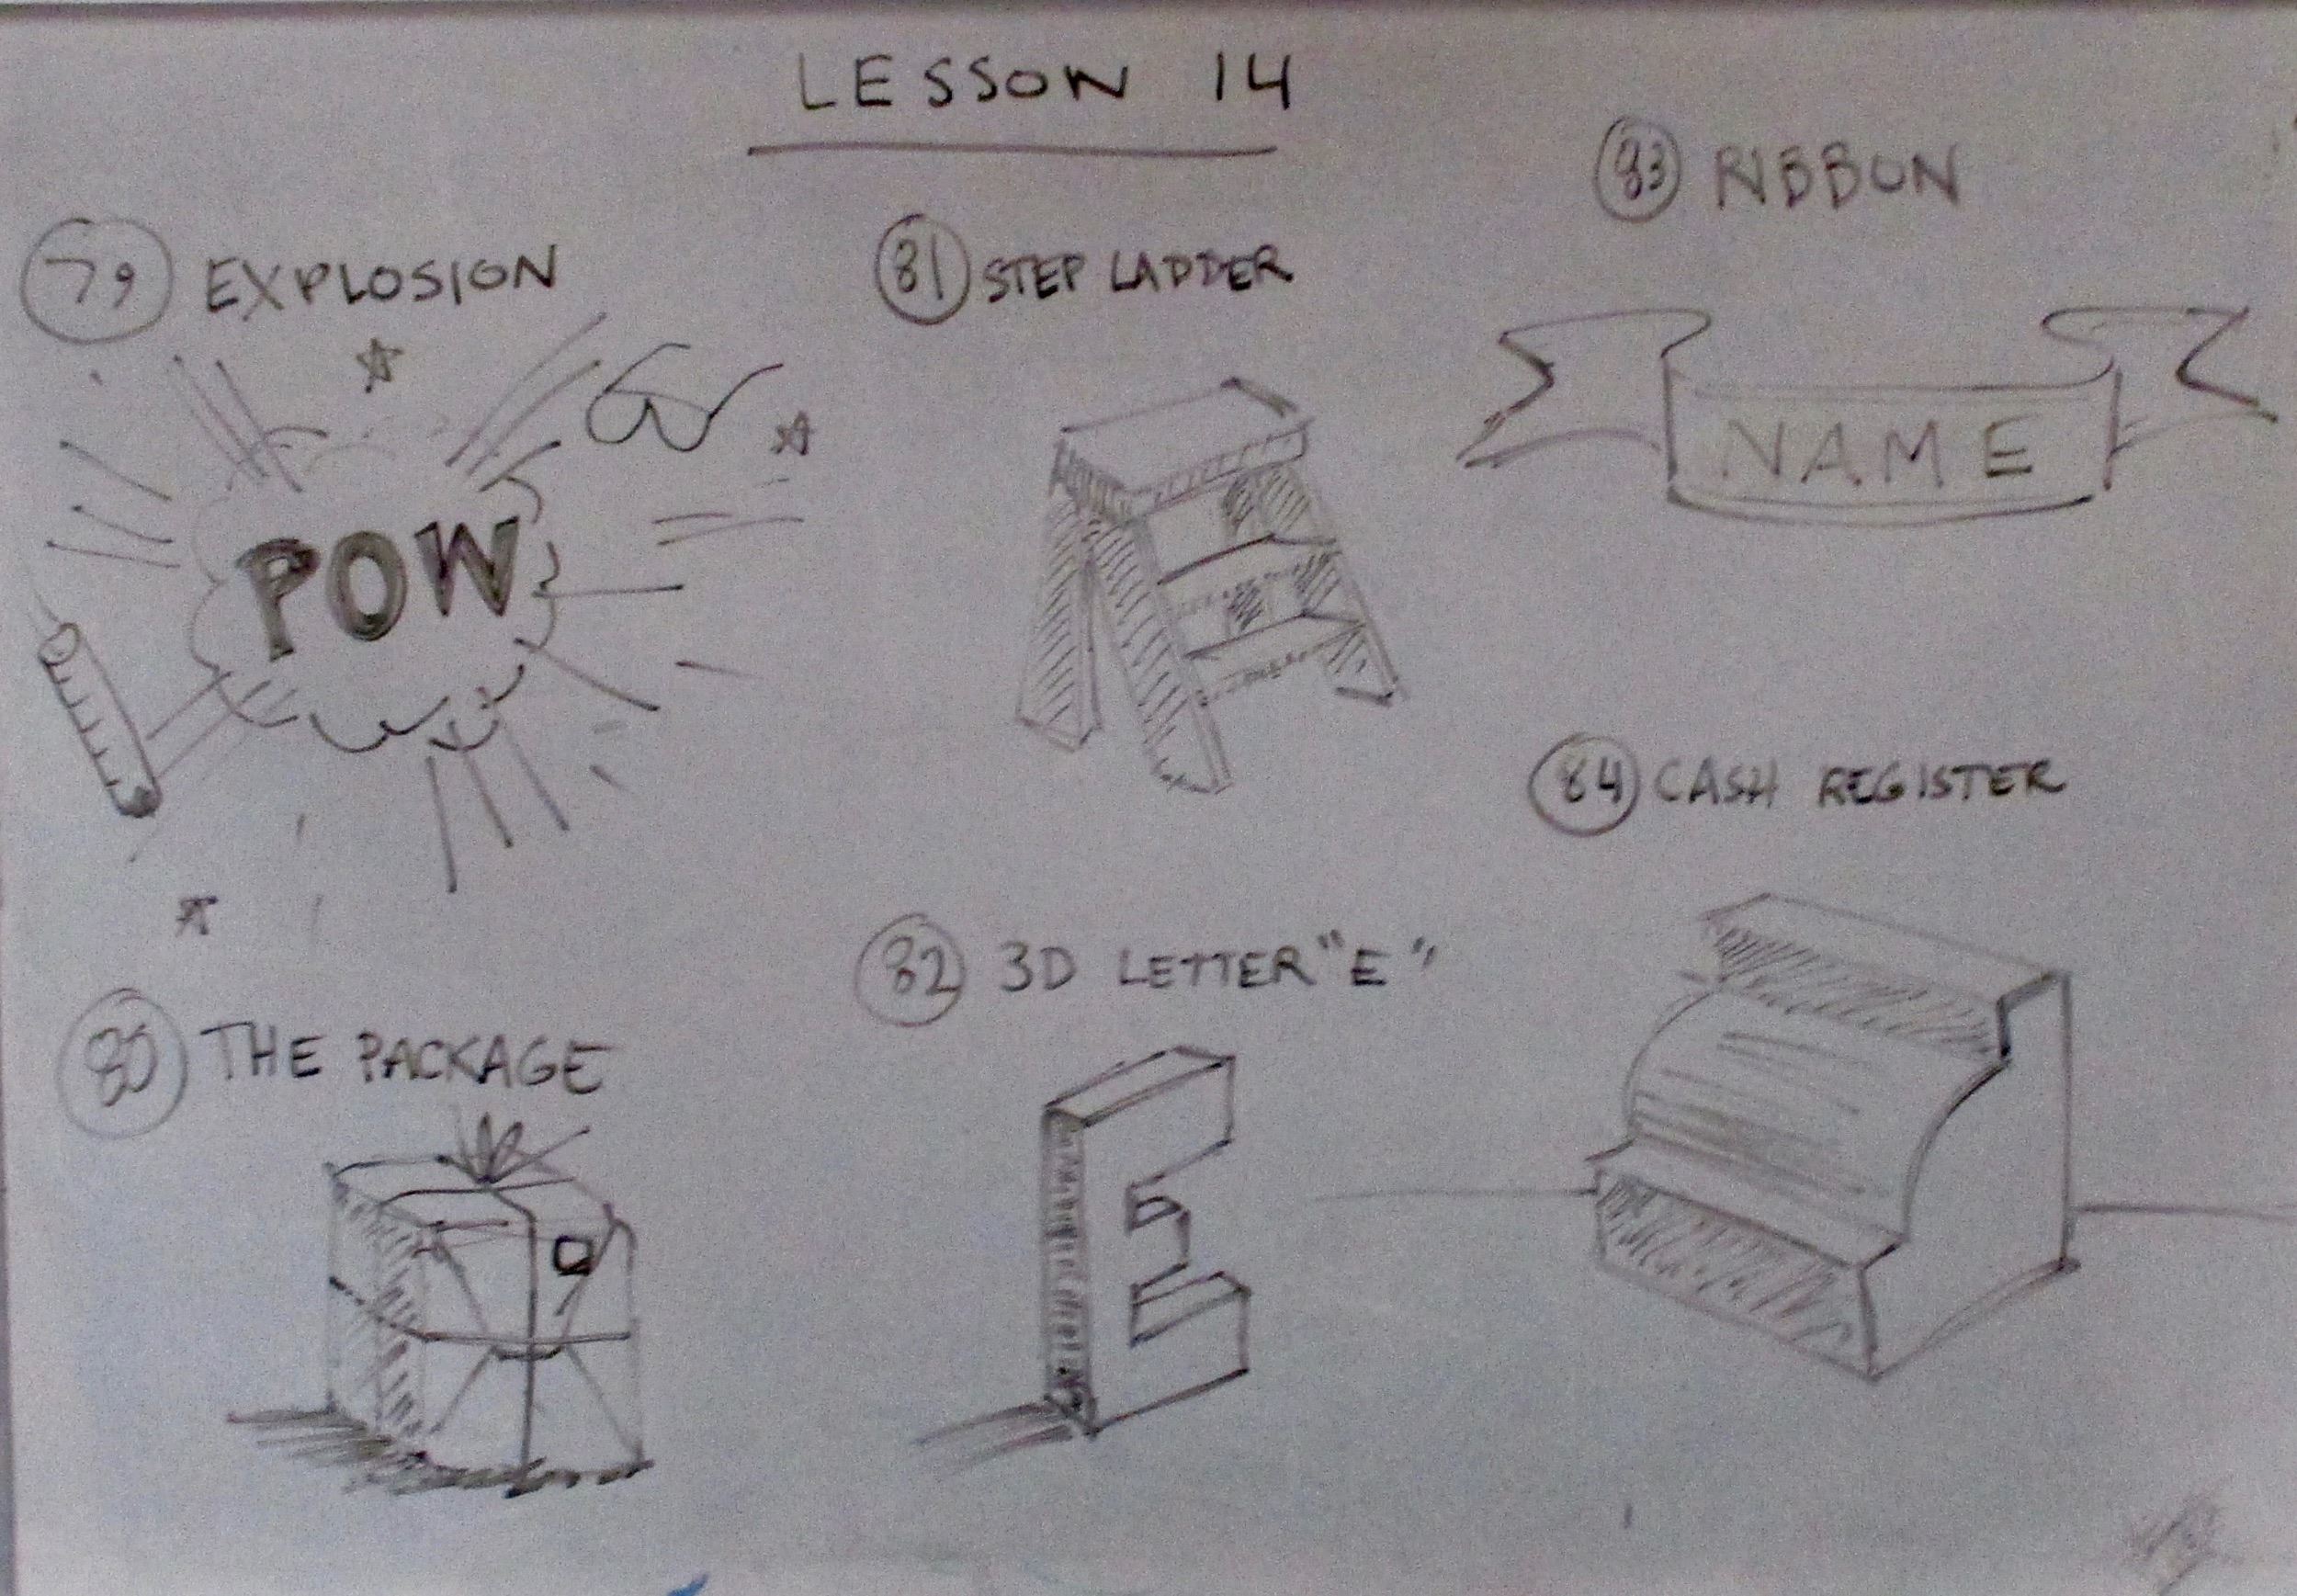 LESSON 14
79 EXPLOSION
POW
80 THE PACKAGE
81 STEP LADDER
82 3D LETTER "E"
83 RIBBON
NAME
84 CASH REGISTER